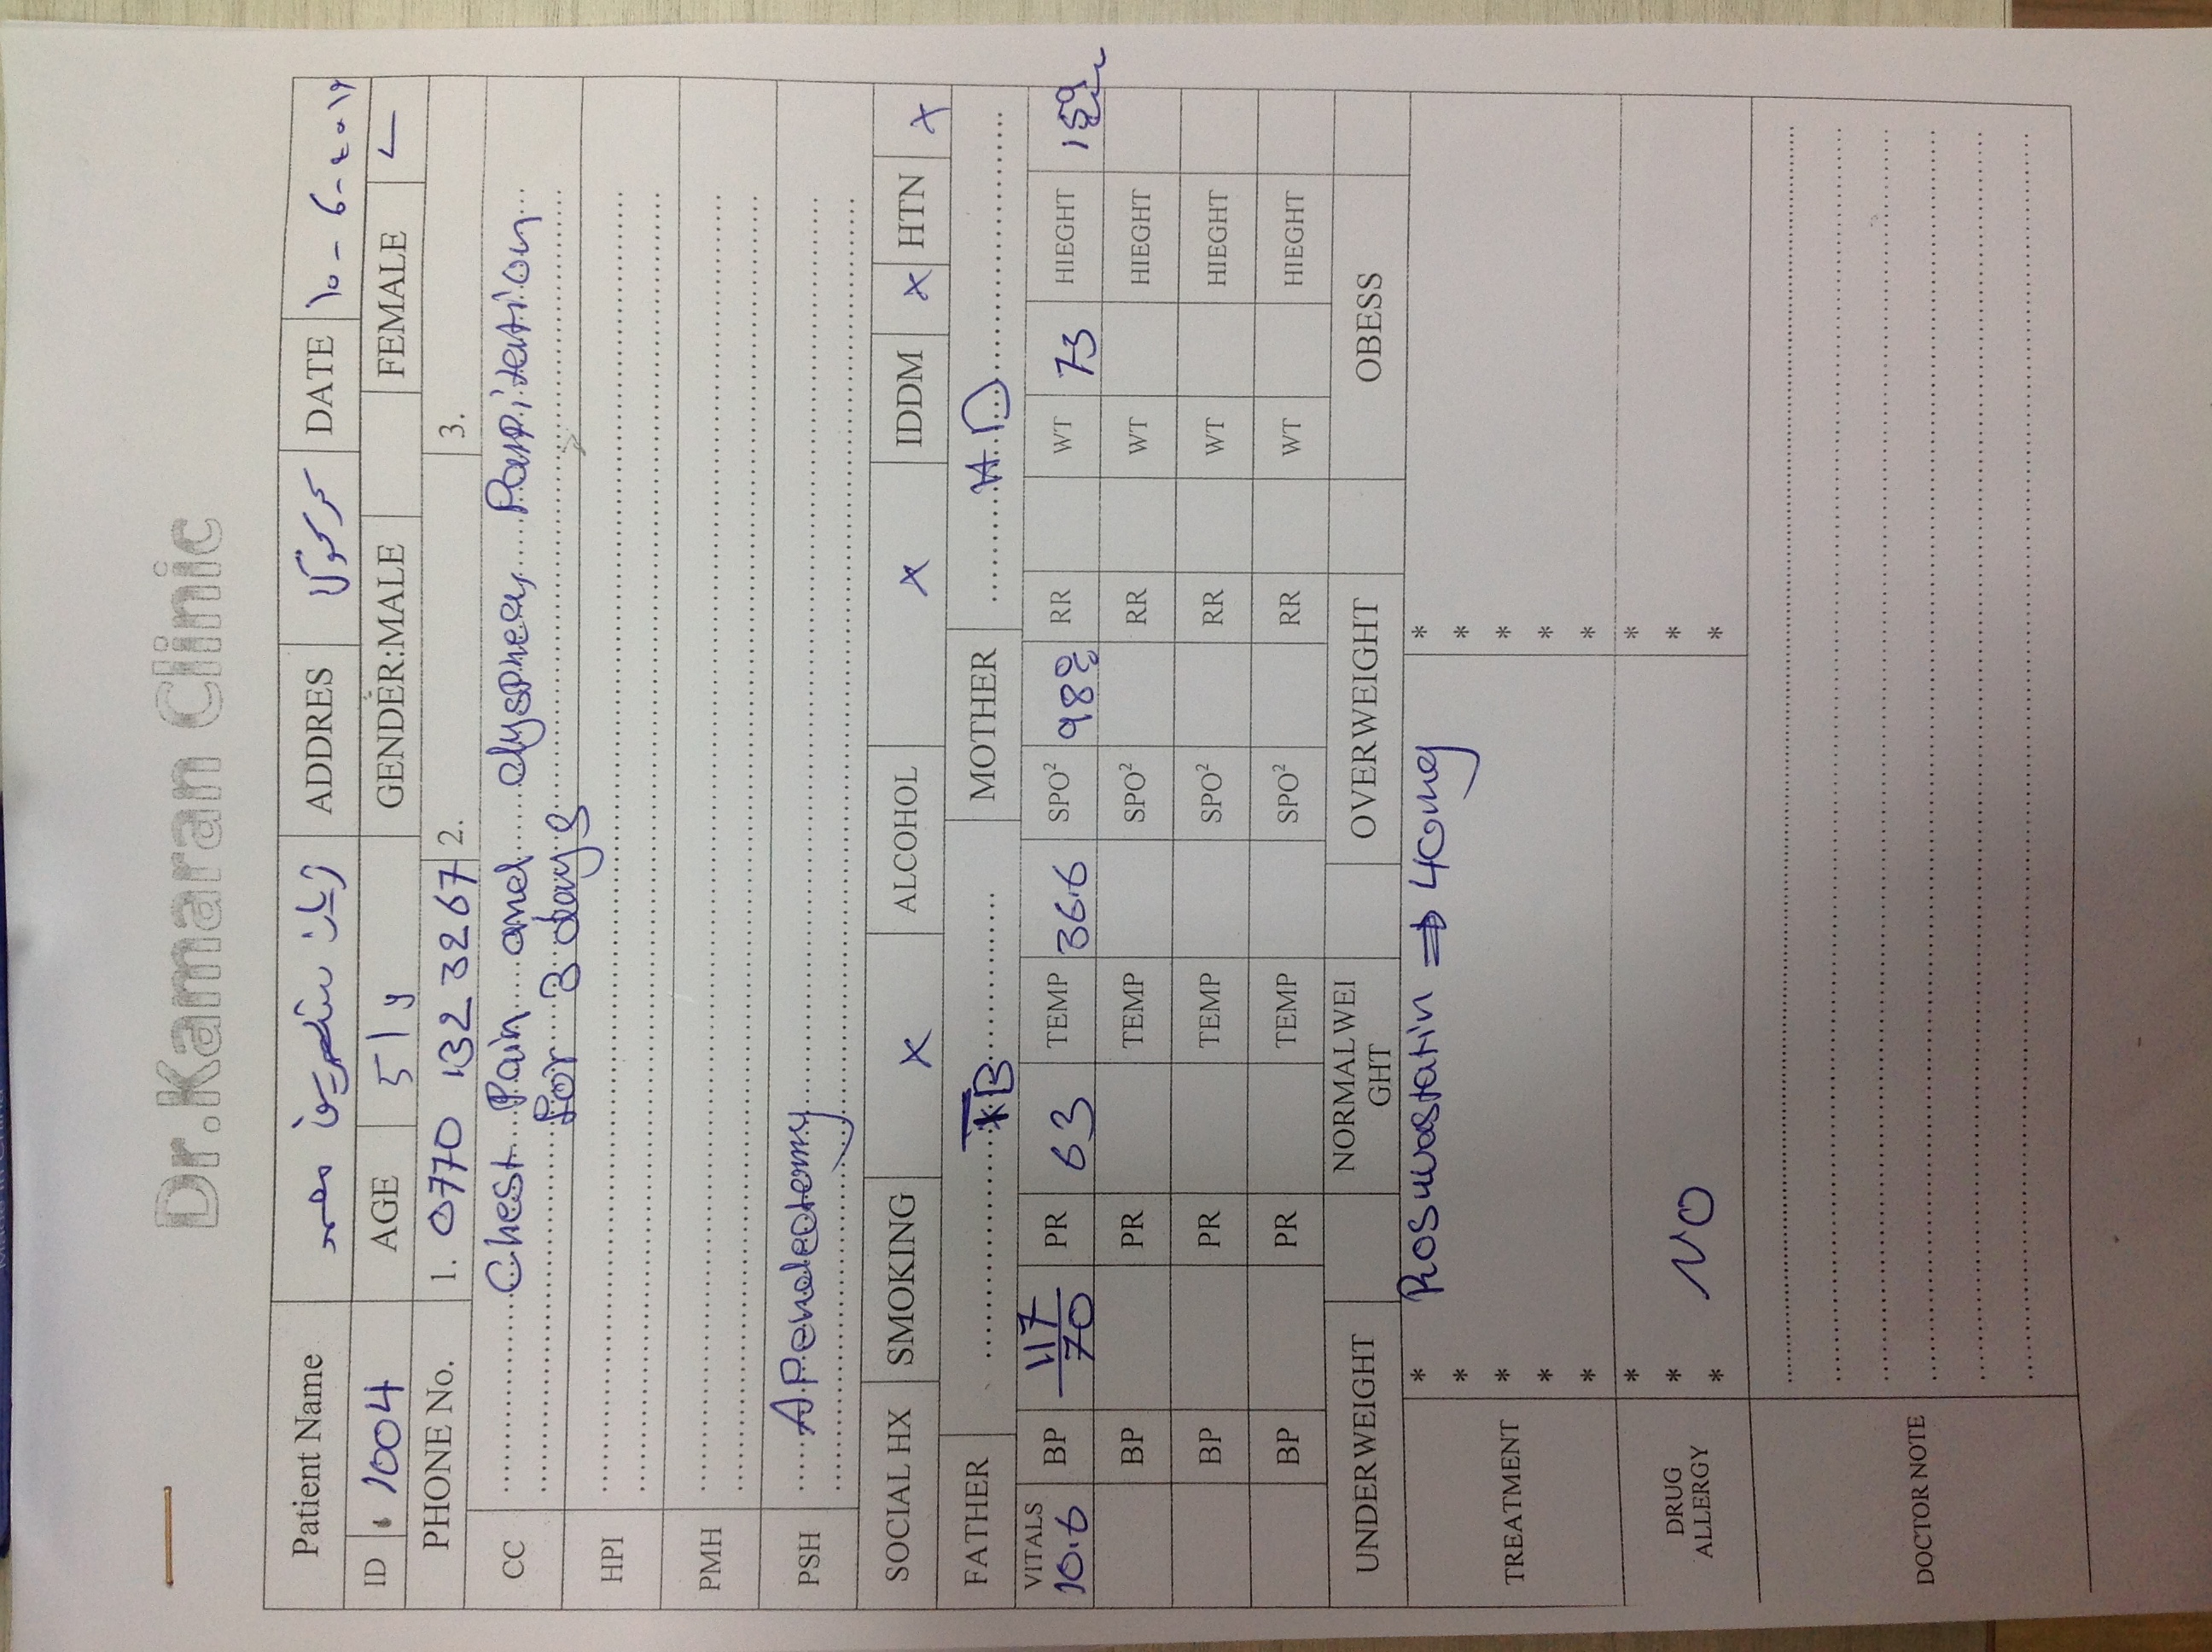 Dr.Kamaran Clinic
Patient Name ADDRES كركوك DATE ١٠-6-٢٠١٧
ID 1004 AGE 51 y GENDER:MALE FEMALE ✓
PHONE No. 1. 0770 132 3267 2. 3.
CC Chest Pain and dyspnea, Palpitation
for 3 days
HPI
PMH
PSH APendectemy
SOCIAL HX SMOKING x ALCOHOL x IDDM x HTN x
FATHER MOTHER H.D
VITALS BP 117/70 PR 63 TEMP 36.6 SPO² 98% RR WT 73 HIEGHT
10.6
BP PR TEMP SPO² RR WT HIEGHT
BP PR TEMP SPO² RR WT HIEGHT
BP PR TEMP SPO² RR WT HIEGHT
UNDERWEIGHT NORMALWEI OVERWEIGHT OBESS
GHT
TREATMENT * Rosuvastatin ⇒ 40mg *
* *
* *
* *
* *
DRUG * *
ALLERGY * NO *
* *
DOCTOR NOTE